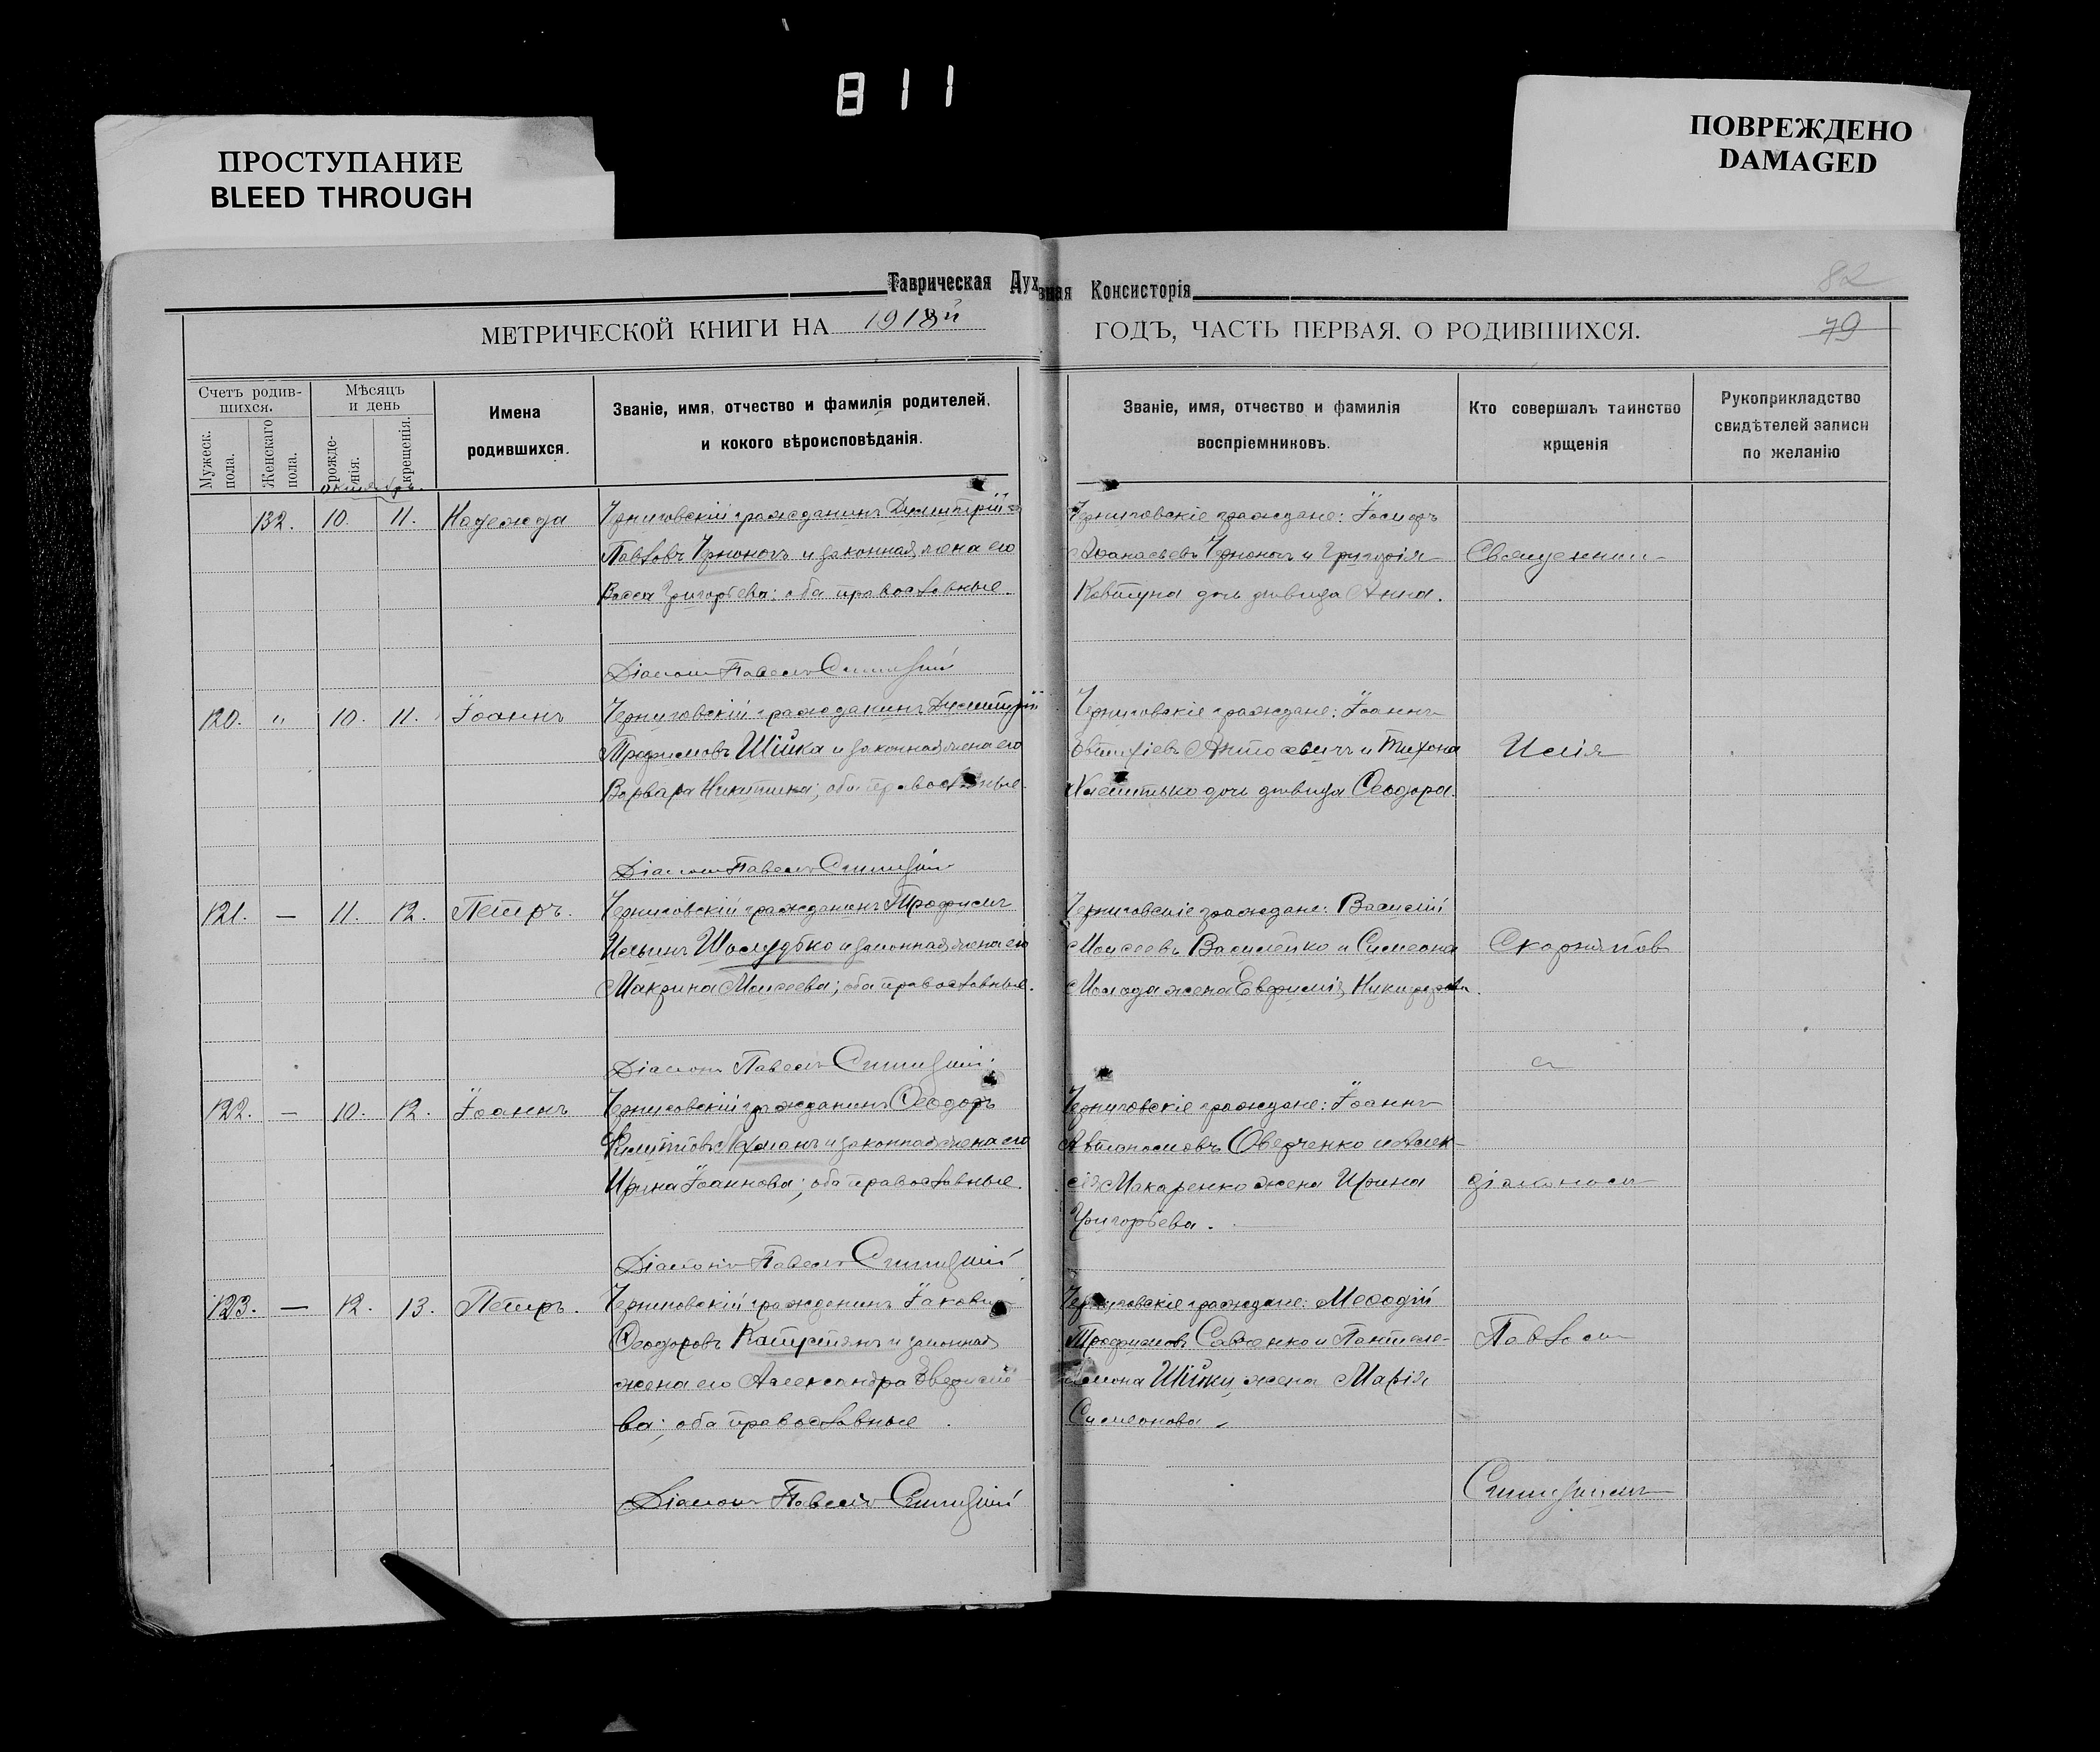 811
ПРОСТУПАНИЕ
BLEED THROUGH
ПОВРЕЖДЕНО
DAMAGED
Таврическая Духовная Консисторія
82
МЕТРИЧЕСКОЙ КНИГИ НА 1918й ГОДЪ, ЧАСТЬ ПЕРВАЯ, О РОДИВШИХСЯ.
79
Счетъ родив-
шихся.
Мужеск.
пола.
Женскаго
пола.
Мѣсяцъ
и день
рожде-
нія.
крещенія.
Имена
родившихся.
Званіе, имя, отчество и фамилія родителей,
и кокого вѣроисповѣданія.
Званіе, имя, отчество и фамилія
воспріемниковъ.
Кто совершалъ таинство
крщенія
Рукоприкладство
свидѣтелей записи
по желанію
октябрь
132. 10. 11. Надежда
Черниговскій гражданинъ Димитрій
Павловъ Черноногъ и законная жена его
Васса Григорьева; оба православные.
Черниговскіе граждане: Іосифъ
Аѳанасьевъ Чернонога и Григорія
Ковтуна дочь дѣвица Анна.
Діаконъ Павелъ
120. " 10. 11. Іоаннъ
Черниговскій гражданинъ Димитрій
Трофимовъ Шійка и законная жена его
Варвара Никитина; оба православные.
Черниговскіе граждане: Іоаннъ
Евтихіевъ и Тихона
дочь дѣвица Ѳеодора.
Діаконъ Павелъ
121. — 11. 12. Петръ.
Черниговскій гражданинъ Трофимъ
Ильинъ Шолудько и законная жена его
Макрина Моисеева; оба православные.
Черниговскіе граждане: Василій
Моисеевъ Василенко и Симеона
жена Евфимія Никифорова.
Діаконъ Павелъ
122. — 10. 12. Іоаннъ
Черниговскій гражданинъ Ѳеодоръ
и законная жена его
Ирина Іоаннова; оба православные.
Черниговскіе граждане: Іоаннъ
Автономовъ Оверченко и Алек-
сія Макаренко жена Ирина
Григорьева.
Діаконъ Павелъ
123. — 12. 13. Петръ.
Черниговскій гражданинъ Іаковъ
Ѳеодоровъ и законная
жена его Александра Евфиміе
ва; оба православные.
Черниговскіе граждане: Меѳодій
Трофимовъ Савченко и Пантеле-
имона Шійки жена Марія
Симеонова.
Діаконъ Павелъ
Священник
Илія
Скорняков
с
діаконом
Павлом